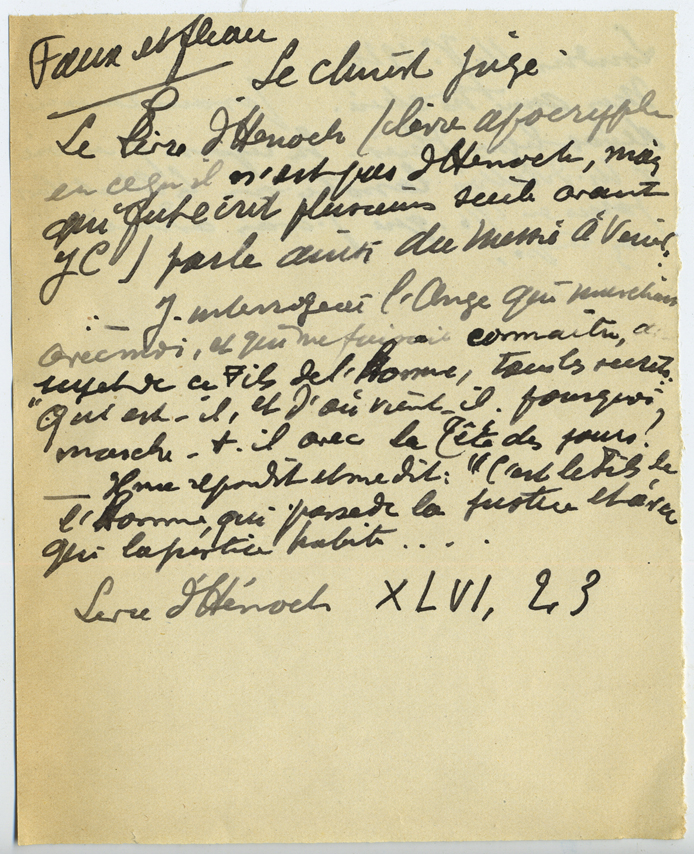 Faux et fléau
Le Christ juge
Le Livre d'Hénoch (livre apocryphe
en ce qu'il n'est pas d'Hénoch, mais
qui fut écrit plusieurs siècle avant
JC) parle ainsi du Messie à Venir.
J'interrogeai l'Ange qui marchait
avec moi, et qui me faisait connaître, au
sujet de ce Fils de l'Homme, tous les secrets.
"Qui est-il, et d'où vient-il. pourquoi,
marche-t-il avec la Tête des jours?
Il me répondit et me dit: "C'est le Fils de
l'Homme, qui possède la justice et avec
qui la justice habite....
Livre d'Hénoch XLVI, 2, 3